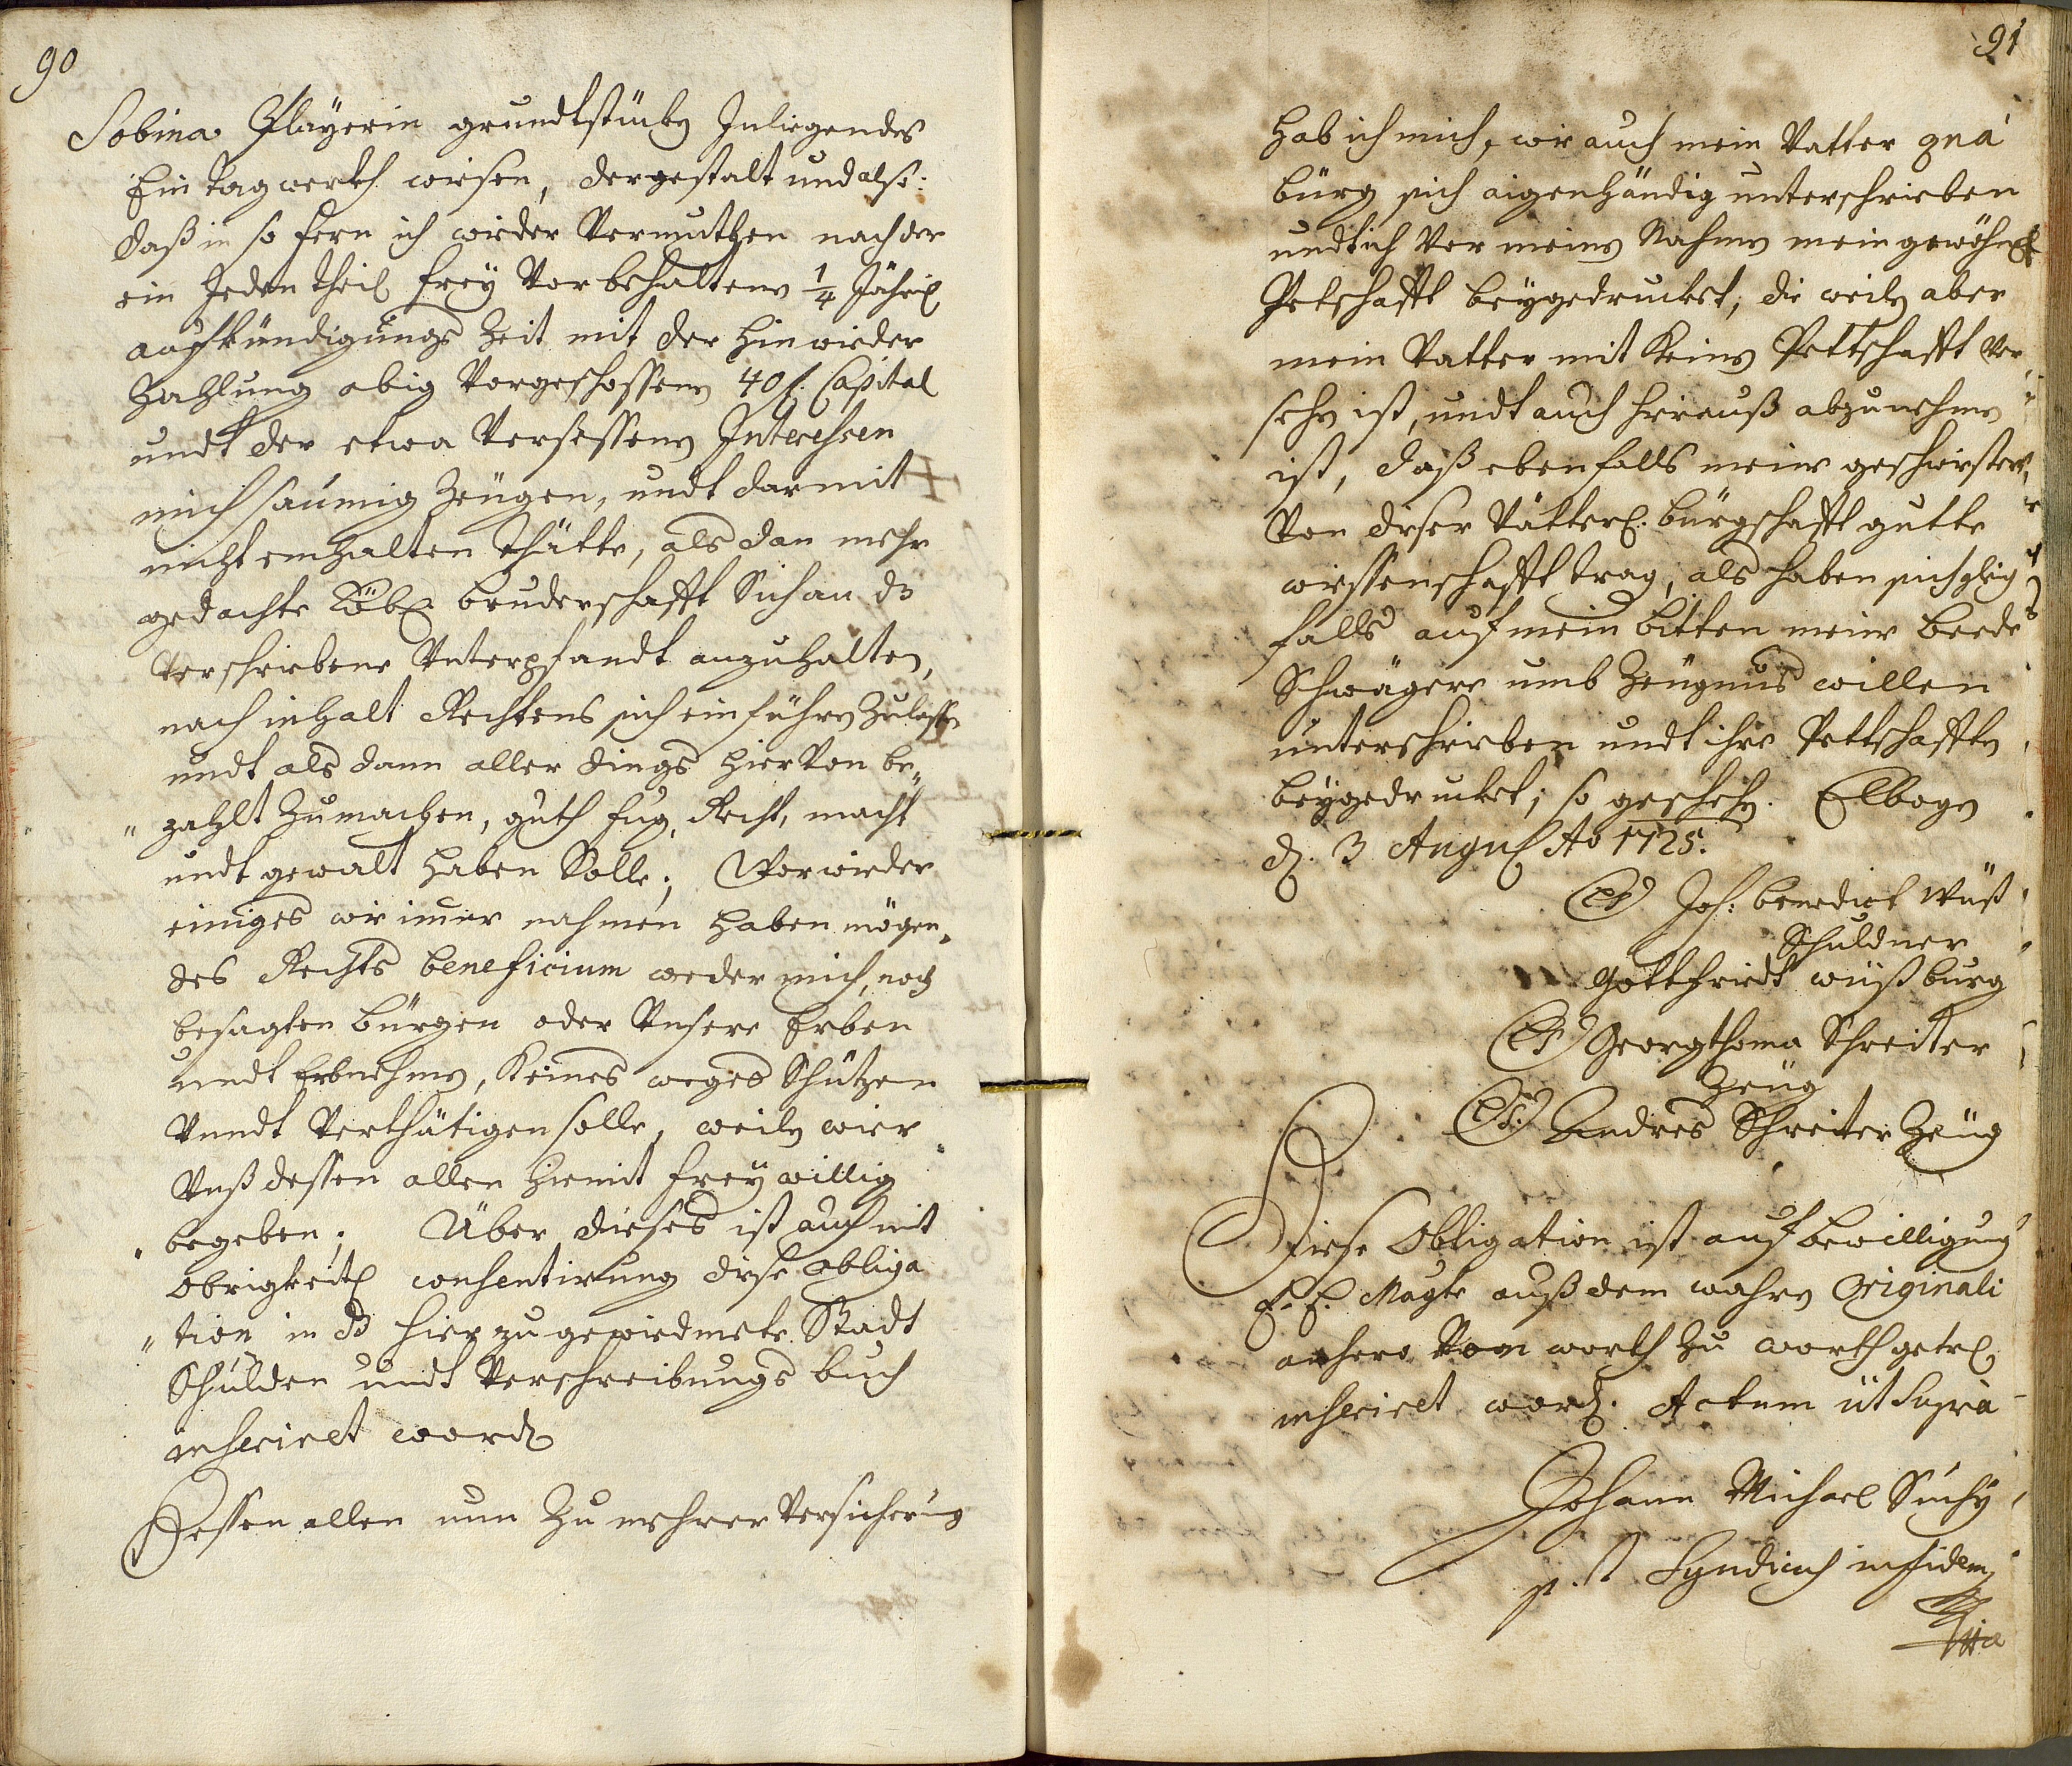 90
Sobina Playerin grundtstückh Inligendes
Ein tagwerkh wiesen, dergestalt und also:
daß in so fern ich wieder Vermuthen nach der
ein Jeden theil frey Vorbehaltenen 1/4 Jährl
aufkündigungs Zeit mit der hinwieder
Zahlung obig Vorgeschossenen 40 f. Capital
undt der etwa Versessenen Interessen
mich saumig Zeugen, undt darmit
nicht einhalten thätte, als dan mehr
gedachte Löbl bruderschafft Sich an dz
Verschriebene Unterpfandt anzuhalten,
nach inhalt Rechtens sich einführen Zulassen
undt als dann aller dings hierVon be„
„zahlt Zumachen, guth fug, Recht, macht
undt gewalt haben Solle; Vorwieder
einiges wie imer nahmen haben mögen„
des Rechts beneficium weder mich, noch
besagten bürgen oder Unsere Erben
undt Erbnehmen, keines weges Schützen
Vundt Verthätigen solle, weilen wier
Unß dessen allen hiemit freywillig
begeben; Über dieses ist auch mit
Obrigkeitl consentirung diese obliga
„tion in dz hierzu gewiedmete Stadt
Schulden undt Verschreibungs buch
inseriret word
Dessen allen nun Zu mehrer Versicherung
91
hab ich mich, wie auch mein Vatter qua
bürg sich aigenhändig unterschrieben
undt ich Vor meinen Nahmen mein gewöhnl
Petschafft beygedrucket, die weilen aber
mein Vatter mit keinen Pettschafft Ver„
sehen ist, undt auch hierauß abzunehmen
ist, daß ebenfalls meine geschwister
Von dieser Vätterl. bürgschafft gutte
wiessenschafft trag, als haben sich gleich
falls auf mein bitten meine beede
Schwägere umb Zeugnus willen
unterschrieben undt ihre Pettschafften
beygedrucket; so geschehen. Elbogen
d. 3 August Ao 1725.
(LS) Joh: benedict Wüß
Schuldner
Gottfriedt wüß burg
(LS) Georg thoma Schreiter
Zeug
(LS.) Andres Schreiter Zeug
Diese Obligation ist auf bewilligung
E. E. Magte auß dem wahren Originali
anhero Von worth zu worth getrl
inseriret word. Actum ut Supra
Johann Michael Suchy
p. t. Syndicus in fidem